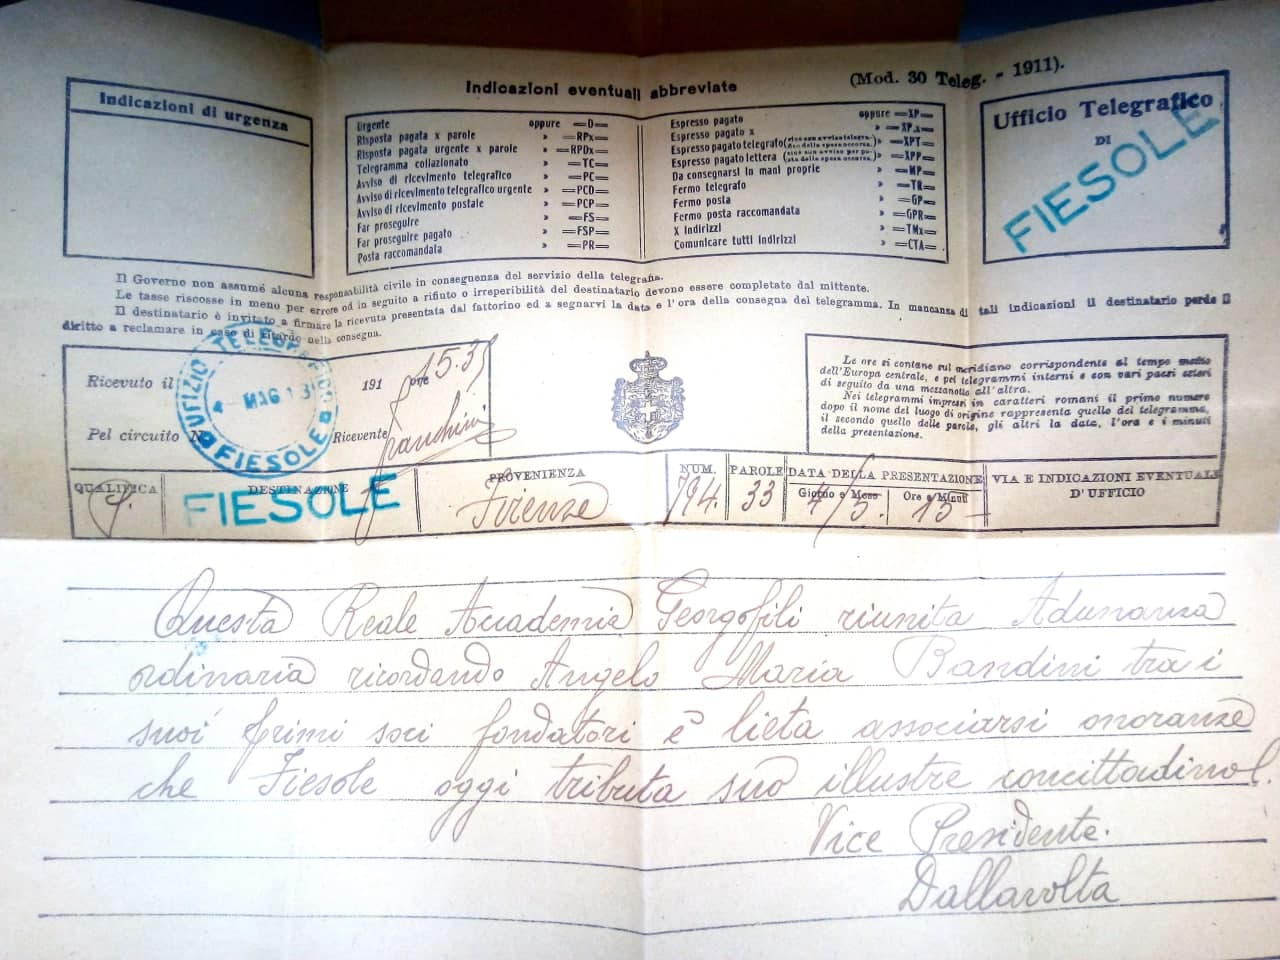 Indicazioni eventuali abbreviate
(Mod. 30 Teleg. - 1911).
Indicazioni di urgenza
Urgente oppure =D=
Risposta pagata x parole » =RPx=
Risposta pagata urgente x parole » =RPDx=
Telegramma collazionato » =TC=
Avviso di ricevimento telegrafico » =PC=
Avviso di ricevimento telegrafico urgente » =PCD=
Avviso di ricevimento postale » =PCP=
Far proseguire » =FS=
Far proseguire pagato » =FSP=
Posta raccomandata » =PR=
Espresso pagato oppure =XP=
Espresso pagato x » =XPx=
Espresso pagato telegrafo » =XPT=
Espresso pagato lettera » =XPP=
Da consegnarsi in mani proprie » =MP=
Fermo telegrafo » =TR=
Fermo posta » =GP=
Fermo posta raccomandata » =GPR=
X indirizzi » =TMx=
Comunicare tutti indirizzi » =CTA=
Ufficio Telegrafico
DI
FIESOLE
Il Governo non assume alcuna responsabilità civile in conseguenza del servizio della telegrafia.
Le tasse riscosse in meno per errore od in seguito a rifiuto o irreperibilità del destinatario devono essere completate dal mittente.
Il destinatario è invitato a firmare la ricevuta presentata dal fattorino ed a segnarvi la data e l'ora della consegna del telegramma. In mancanza di tali indicazioni il destinatario perde il
diritto a reclamare in caso di ritardo nella consegna.
Ricevuto il 191 ore 15.35
Pel circuito N. Ricevente
4 MAG 13
FIESOLE
Le ore si contano sul meridiano corrispondente al tempo medio
dell'Europa centrale, e pei telegrammi interni e con vari paesi esteri
di seguito da una mezzanotte all'altra.
Nei telegrammi impressi in caratteri romani il primo numero
dopo il nome del luogo di origine rappresenta quello del telegramma,
il secondo quello delle parole, gli altri la data, l'ora e i minuti
della presentazione.
QUALIFICA
DESTINAZIONE
FIESOLE
PROVENIENZA
Firenze
NUM.
794.
PAROLE
33
DATA DELLA PRESENTAZIONE
Giorno e Mese
4/5.
Ore e Minuti
15 –
VIA E INDICAZIONI EVENTUALI
D'UFFICIO
Questa Reale Accademia Georgofili riunita Adunanza
ordinaria ricordando Angelo Maria Bandini tra i
suoi primi soci fondatori è lieta associarsi onoranze
che Fiesole oggi tributa suo illustre concittadino.
Vice Presidente.
Dallavolta